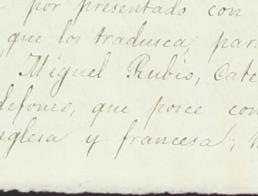 por presentado con
que los traduzca, para
Miguel Rubio, Cate
defonso, que posee con
nglesa y francesa;